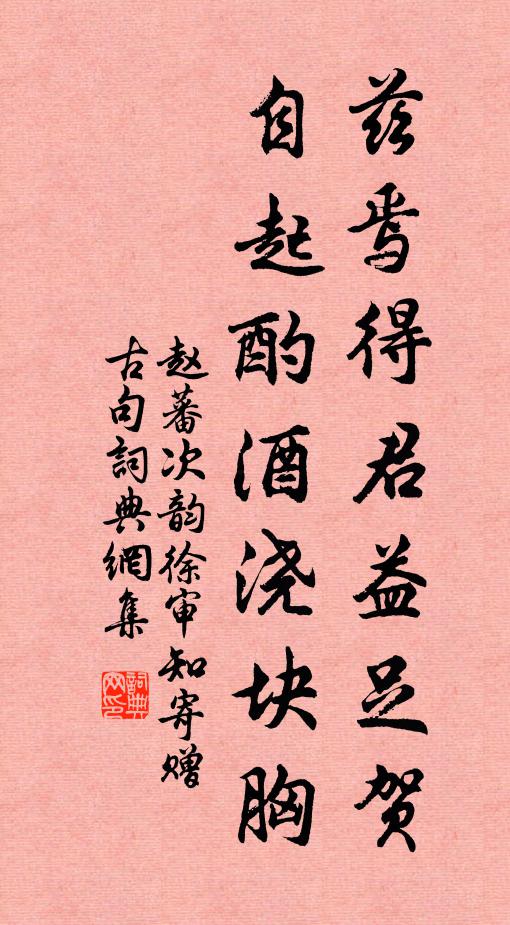 兹焉得君益足贺
自起酌酒浇块胸
赵蕃次韵徐审知寄赠
古句詞典網集
詞典網印